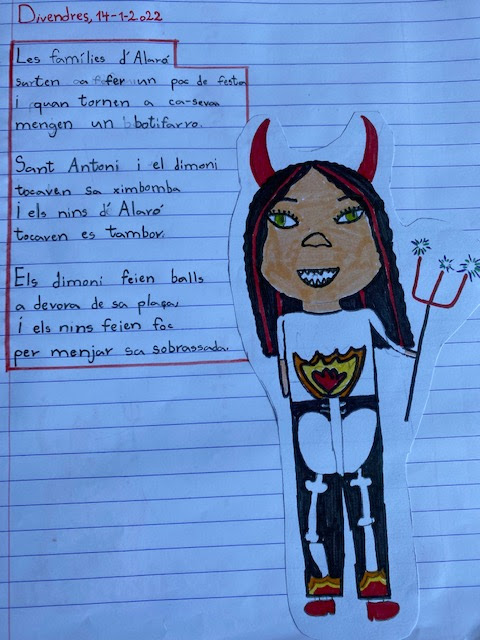 Divendres, 14-1-2022
Les famílies d'Alaró
surten a fer un poc de festa
i quan tornen a ca-seva
mengen un botifarro.
Sant Antoni i el dimoni
tocaven sa ximbomba
i els nins d'Alaró
tocaven es tambor.
Els dimoni feien balls
a devora de sa plaça,
i els nins feien foc
per menjar sa sobrassada.